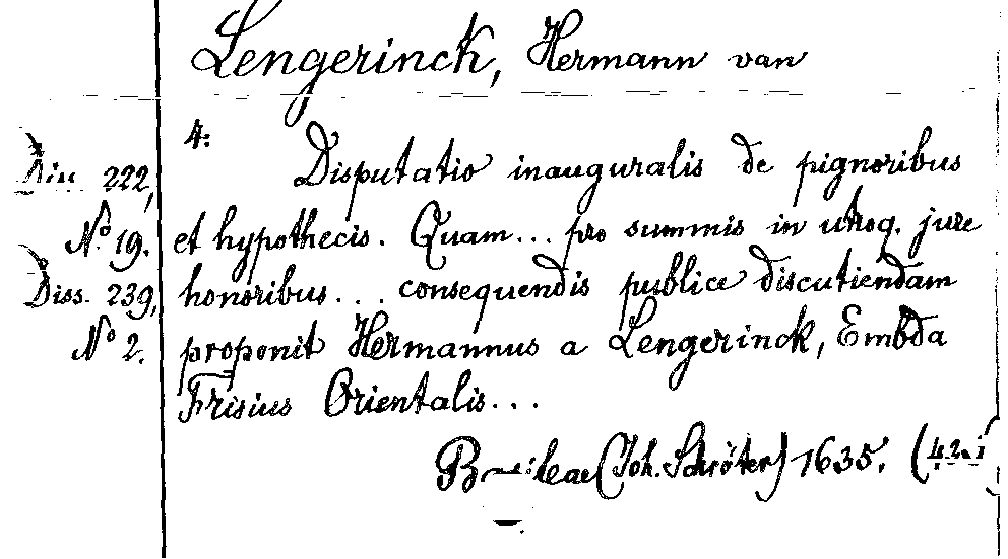 Lengerinck, Hermann van
4:
Disputatio inauguralis de pignoribus
Diss. 222,
Nº 19. et hypothecis. Quam... pro summis in utroq. jure
Diss. 239, honoribus... consequendis publice discutiendam
Nº 2. proponit Hermannus a Lengerinck, Embda
Frisius Orientalis...
(Joh. Schröter) 1635.